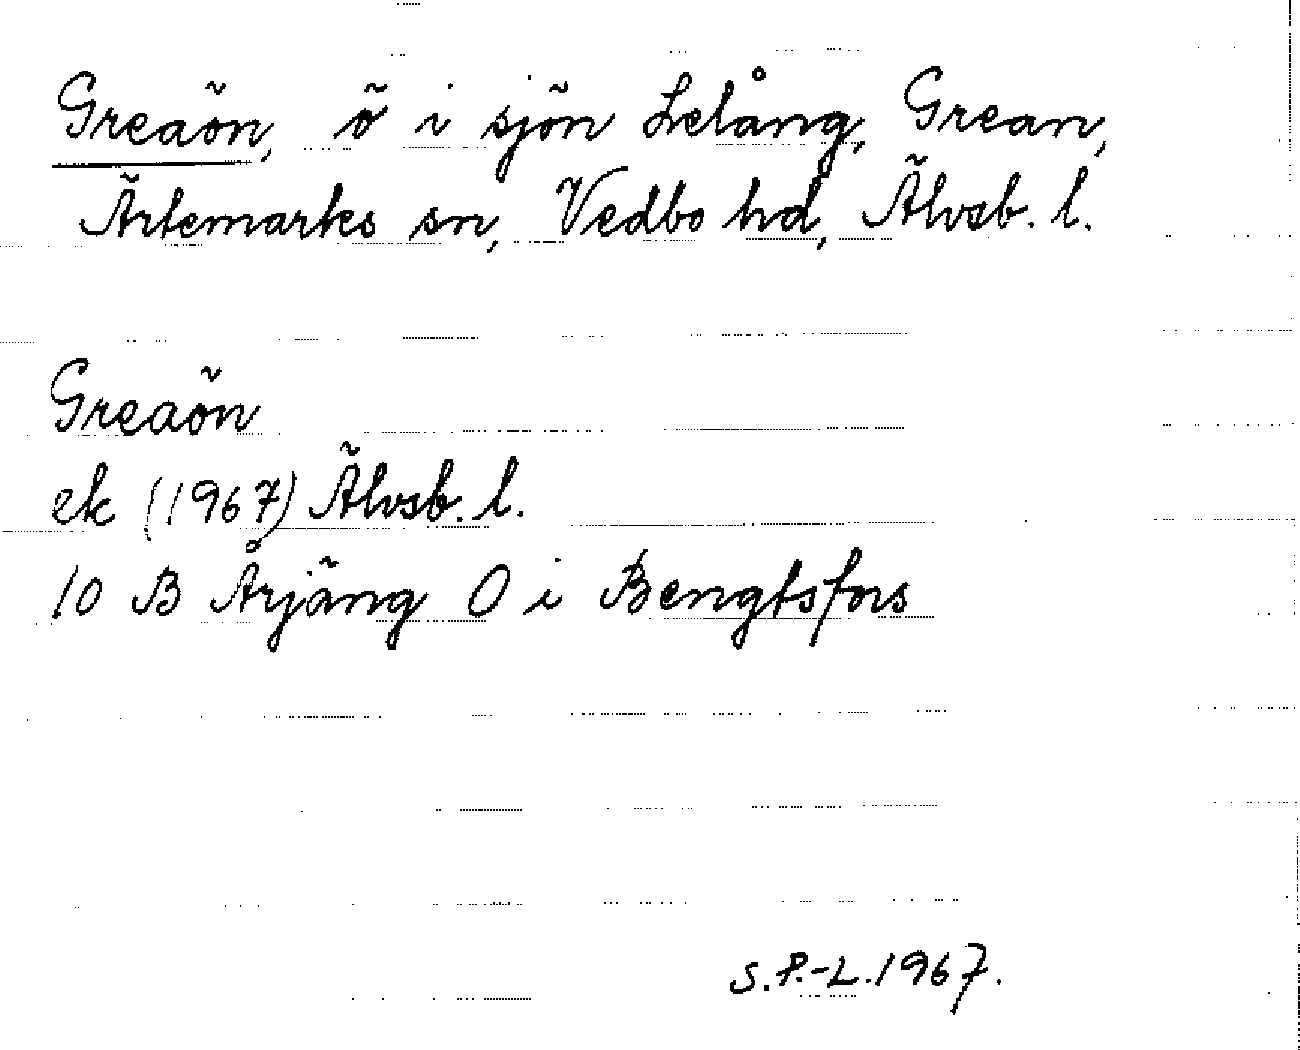 Greaön, ö i sjön Lelång, Grean,
Ärtemarks sn, Vedbo hd, Älvsb. l.
Greaön
ek (1967) Älvsb. l.
10 B Årjäng O i Bengtsfors
S.P.-L. 1967.